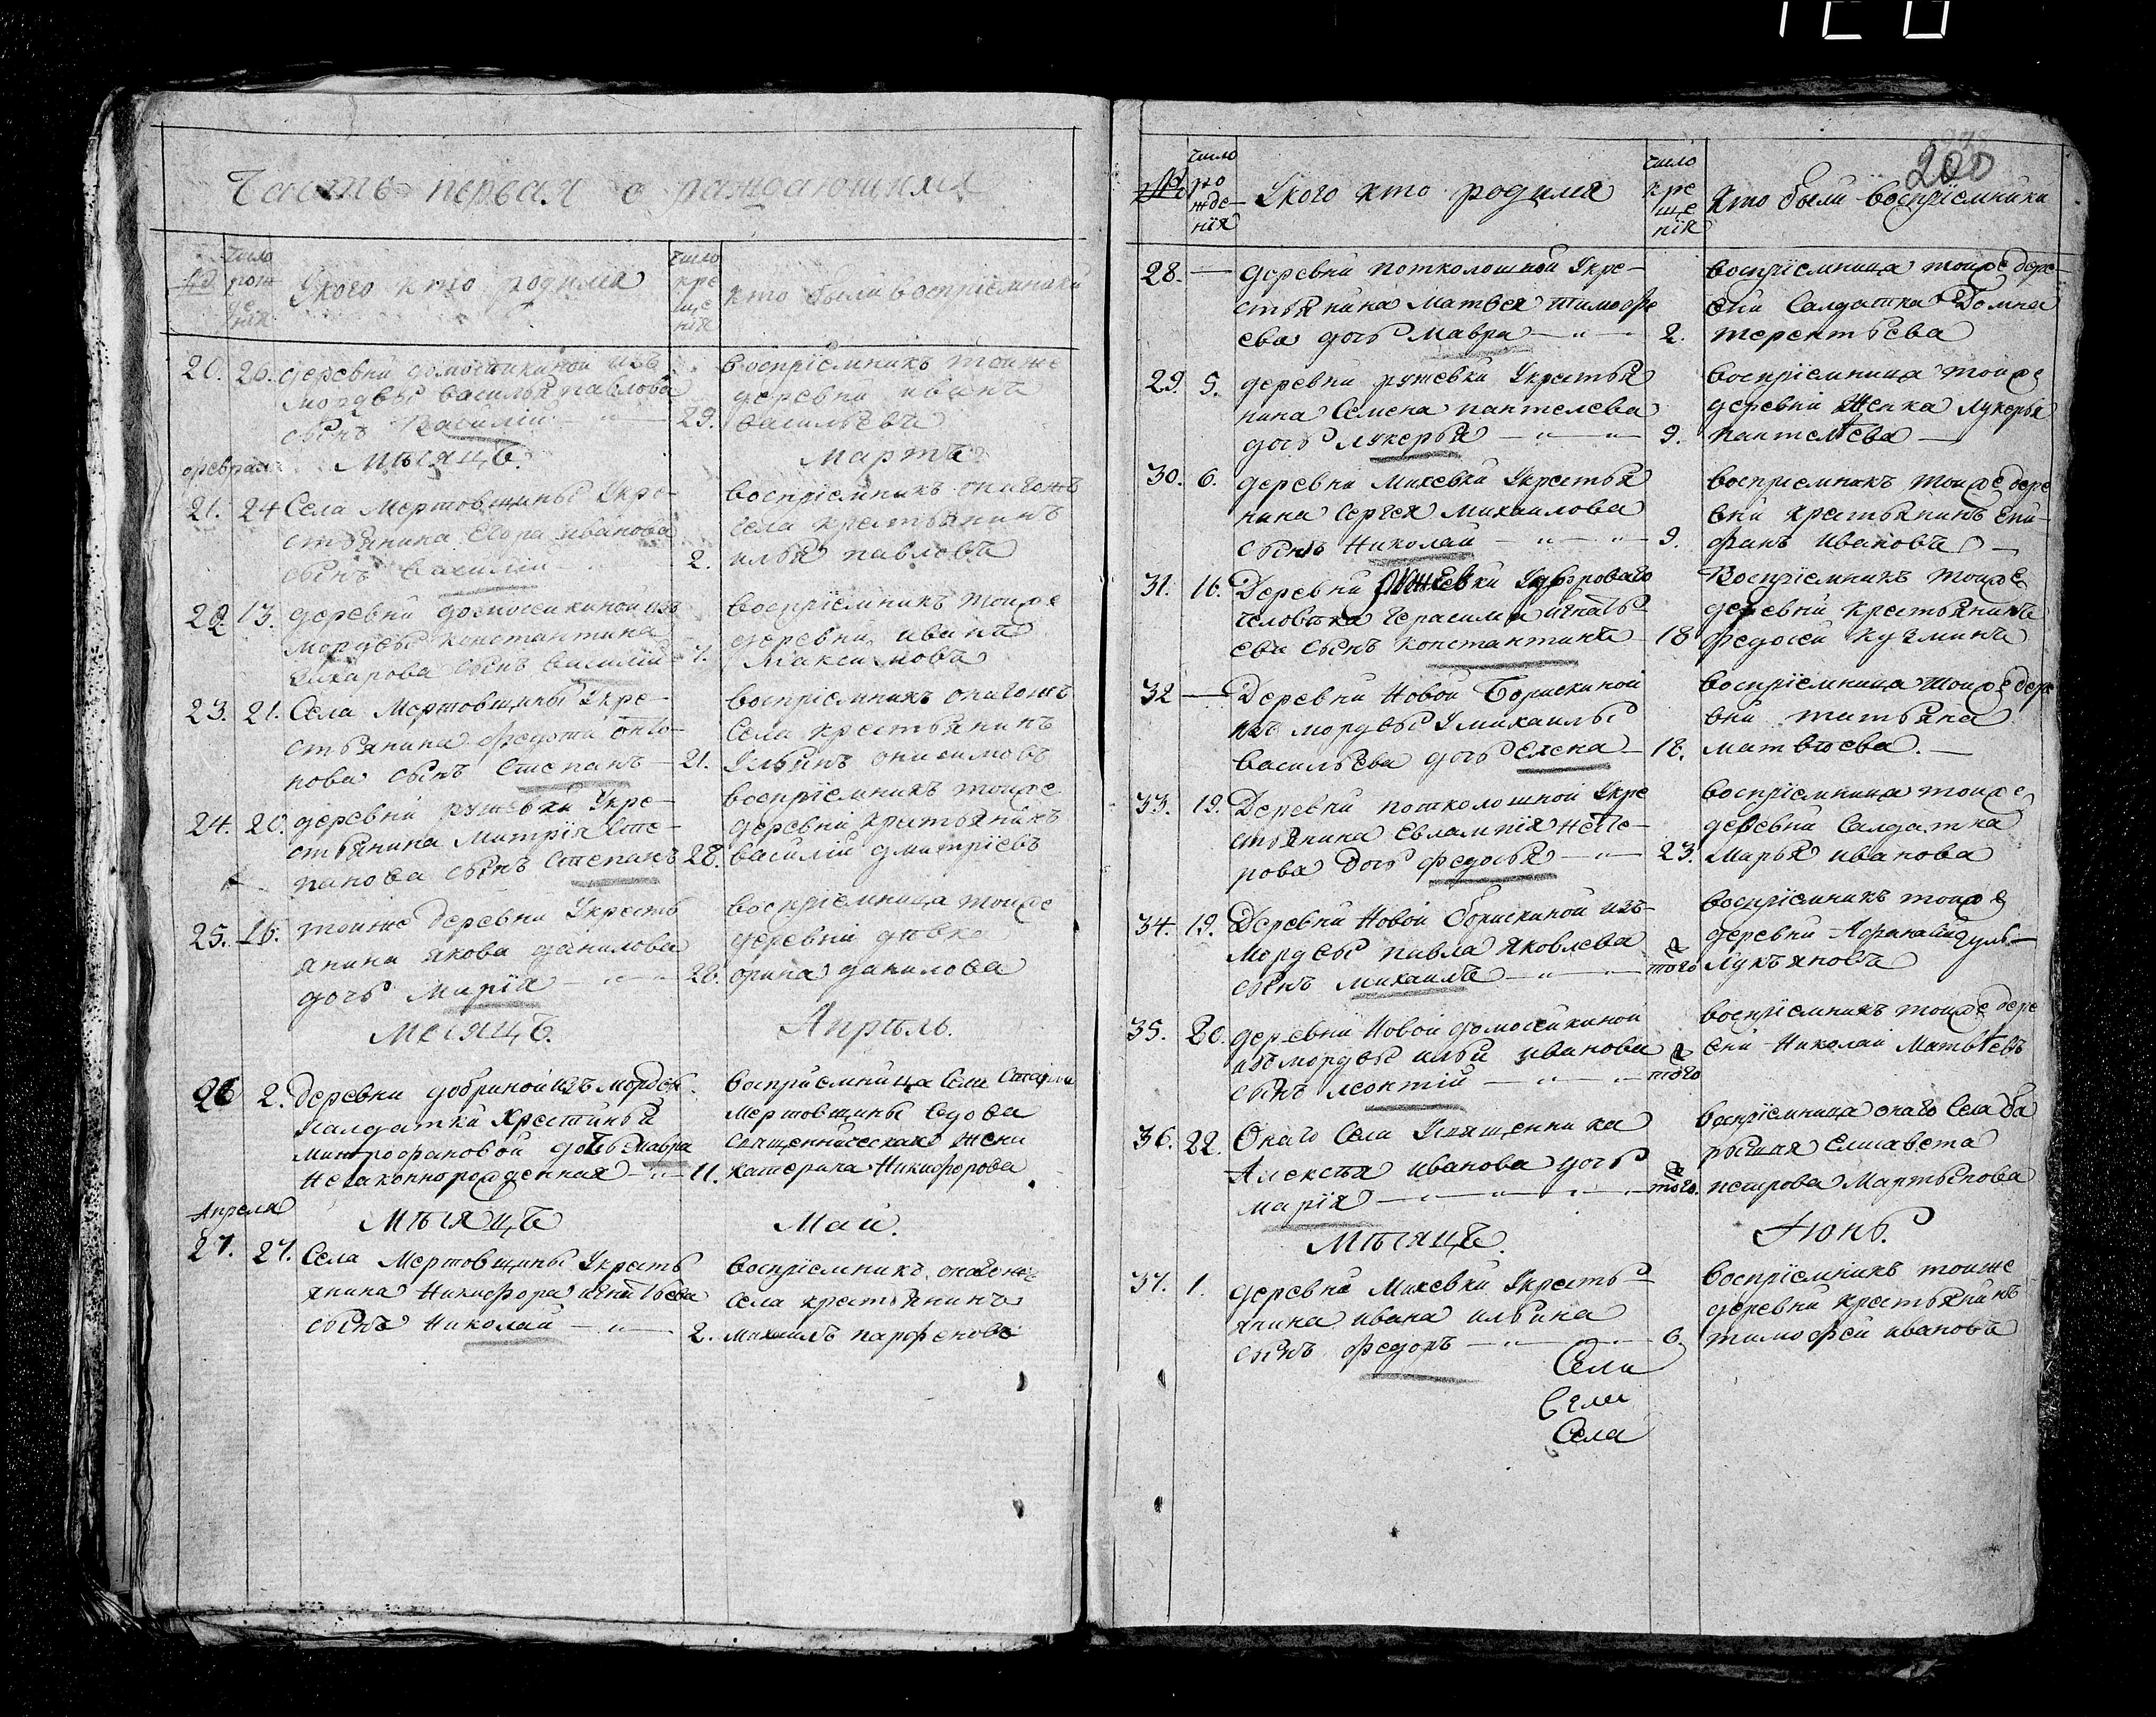 Часть первая о раждающихся
№
число рожденія
У кого кто родился
число крещенія
кто были воспріемники
20. 26. деревни домосѣкиной изъ
мордвы василья павлова
сынъ Василій — 29.
воспріемникъ тоиже
деревни иванъ
васильевъ
февраля Мѣсяцъ. Мартъ
21. 24 Села Мертовщины Укре-
стьянина Егора иванова
сынъ василій 2.
воспріемникъ онагожъ
села крестьянинъ
илья павловъ
22. 13. деревни домосекиной изъ
мордвы константина
захарова сынъ василій 7.
воспріемникъ тоиже
деревни иванъ
Максимовъ
23. 21. Села Мертовщины Укре-
стьянина федота
нова сынъ Степанъ — 21.
воспріемникъ онагожъ
Села крестьянинъ
онисимовъ
24. 20. деревни ружевки Укре-
стьянина Митрія Сте-
панова сынъ Степанъ 28.
воспріемникъ тоиже
деревни крестьянинъ
василій дмитріевъ
25. 16. тоиже деревни Укресть
янина якова данилова
дочь Марія — 28.
воспріемница тоиже
деревни дѣвка
орина данилова
Месяцъ. Апрѣль.
26 2. деревни добриной изъ мордвы
салдатки крестиньи
митрофановой дочь Мавра
Незаконнорожденная — 11.
воспріемница Села
Мертовщины вдова
священническая жена
катерина Никифорова
Апреля Мѣсяцъ Май.
27. 27. Села Мертовщины Укресть
янина Никифора игнатьева
сынъ Николай — 2.
воспріемникъ онагожъ
Села крестьянинъ
михаилъ парфеновъ
200
№
число рожденія
Укого кто родился
число крещенія
Кто были воспріемники
28. — деревни потколошной Укре-
стьянина Матвея тимофе
ева дочь Мавра — 2.
воспріемница тоиже дере-
вни Салдатка Домна
терентьева
29. 5. деревни ружевки Укрестья
нина Семена пантелева
дочь лукерья — 9.
воспріемница тоиже
деревни женка лукерья
пантелѣева —
30. 6. деревни Михевки Укрестья
нина Сергея Михаилова
сынъ Николай — 9.
воспріемникъ тоиже дере
вни крестьянинъ Епи-
фанъ ивановъ —
31. 16. Деревни Ружевки Удвороваго
человѣка герасима игнать
ева сынъ константинъ 18
Воспріемникъ тоиже
деревни крестьянинъ
федосей кузминъ
32 — Деревни Новой Борискиной
изъ мордвы Умихаилы
васильева дочь Елена — 18.
воспріемница тоиже дере
вни татьяна
матвѣева. —
33. 19. Деревни потколошной Укре
стьянина Евлампія Несте-
рова дочь федосья — 23.
воспріемница тоиже
деревни Салдатка
Марья иванова
34. 19. Деревни Новой борискиной изъ-
Мордвы павла яковлева
сынъ михаилъ — того
воспріемникъ тоиже
деревни Афанасій
лукъяновъ
35. 20. деревни Новой домосекиной
изъ мордвы ильи иванова
сынъ леонтій — того
воспріемникъ тоиже дере
вни Николай Матвѣевъ
36. 22. Онаго Села Усвященника
Алексѣя иванова дочь
марія — того.
воспріемница онаго Села ба
рышня Елисавета
петрова Мартынова
Мѣсяцъ. Іюнь.
37. 1. деревни Михевки Укресть-
янина ивана ильина
сынъ федоръ — 6
воспріемникъ тоиже
деревни крестьянинъ
тимофей ивановъ
Села
Села
Села